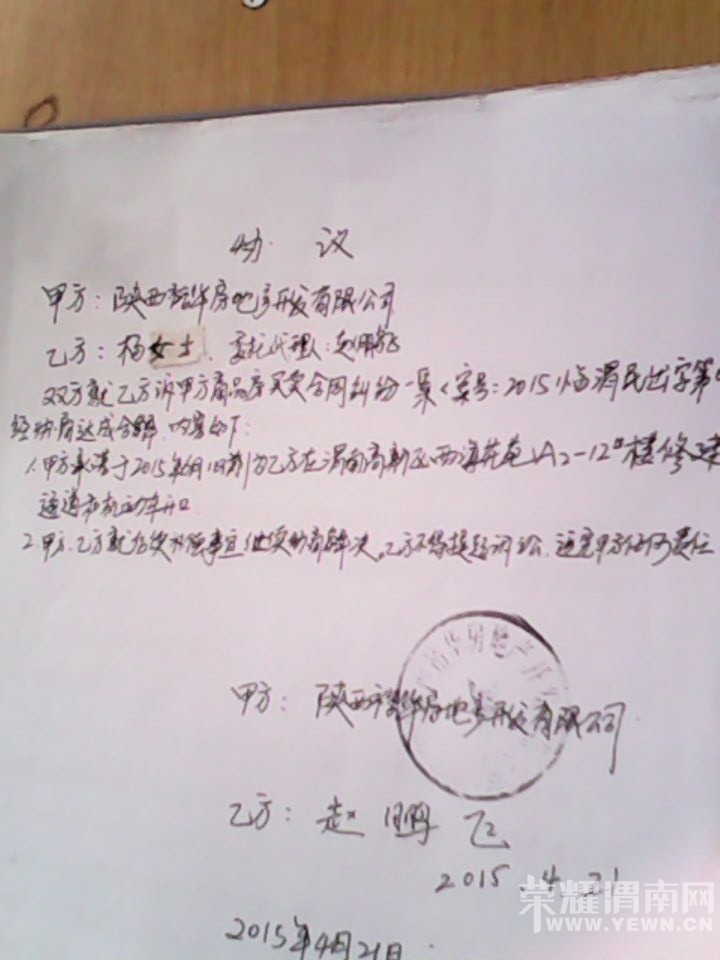 协 议
甲方：陕西韶华房地产开发有限公司
乙方：杨女士，委托代理：赵鹏飞
双方就乙方诉甲方商品房买卖合同纠纷一案（案号：2015临渭民出字第
经协商达成合解，内容如下：
1.甲方承诺于2015年6月10前为乙方在渭南高新区西 花苑A2-12#楼修建
通道和机动车开口
2.甲方、乙方就 事宜继续协商解决。乙方不得提起诉讼，追究甲方任何责任
华房地产开
甲方：陕西韶华房地产开发有限公司
乙方：赵鹏飞
2015.4.21
2015年4月21日
荣耀渭南网
WWW.YEWN.CN